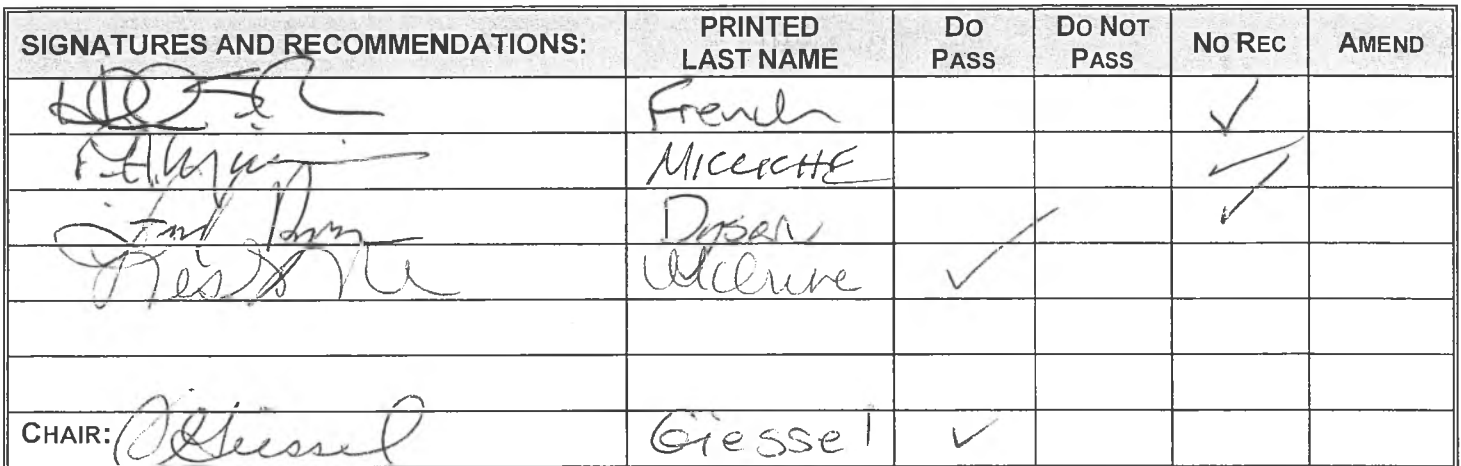 SIGNATURES AND RECOMMENDATIONS: PRINTED LAST NAME DO PASS DO NOT PASS NO REC AMEND
French ✓
MICCICHE ✓
Dyson ✓
McGuire ✓
CHAIR: Giessel Giessel ✓